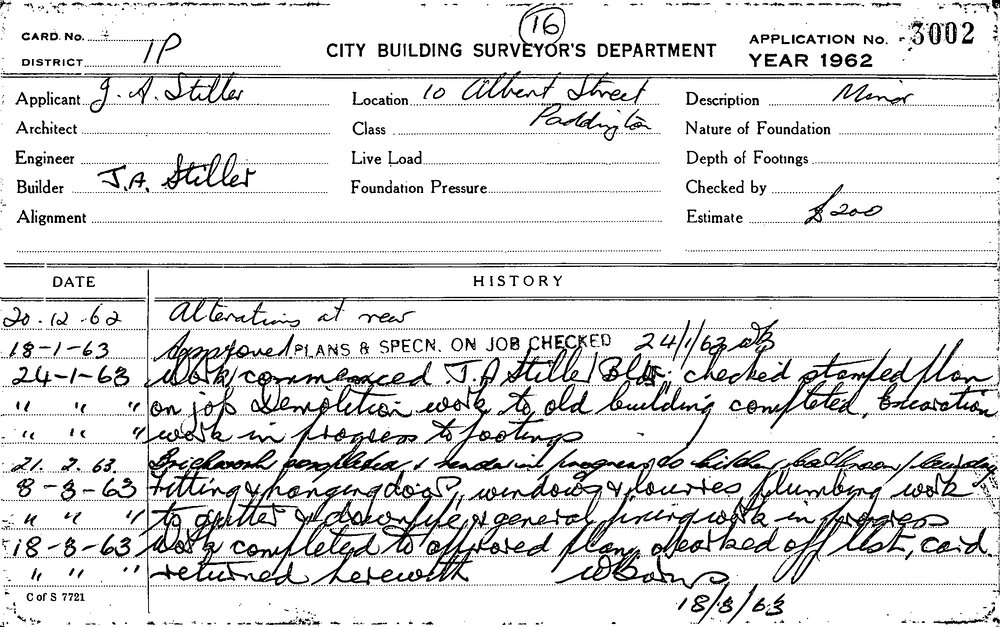 16
CARD. No.
DISTRICT 1P
CITY BUILDING SURVEYOR'S DEPARTMENT
APPLICATION No. 3002
YEAR 1962
Applicant J. A. Stiller Location 10 Albert Street Description Minor
Architect Class Paddington Nature of Foundation
Engineer Live Load Depth of Footings
Builder J.A. Stiller Foundation Pressure Checked by
Alignment Estimate £200
DATE HISTORY
20.12.62 Alterations at rear
18-1-63 Approved PLANS & SPECN. ON JOB CHECKED 24/1/63
24-1-63 Work commenced J.A Stiller Bldr. checked stamped plan
" " " on job Demolition work to old building completed, Excavation
" " " work in progress to footings
21. 2. 63. Brickwork completed & render in progress to kitchen bathroom / laundry
8-3-63 Fitting & hanging doors, windows & louvres plumbing work
" " " to gutter & downpipe, & general fixing work in progress
18-3-63 Work completed to approved plan, marked off list, card
" " " returned herewith
18/3/63
C of S 7721